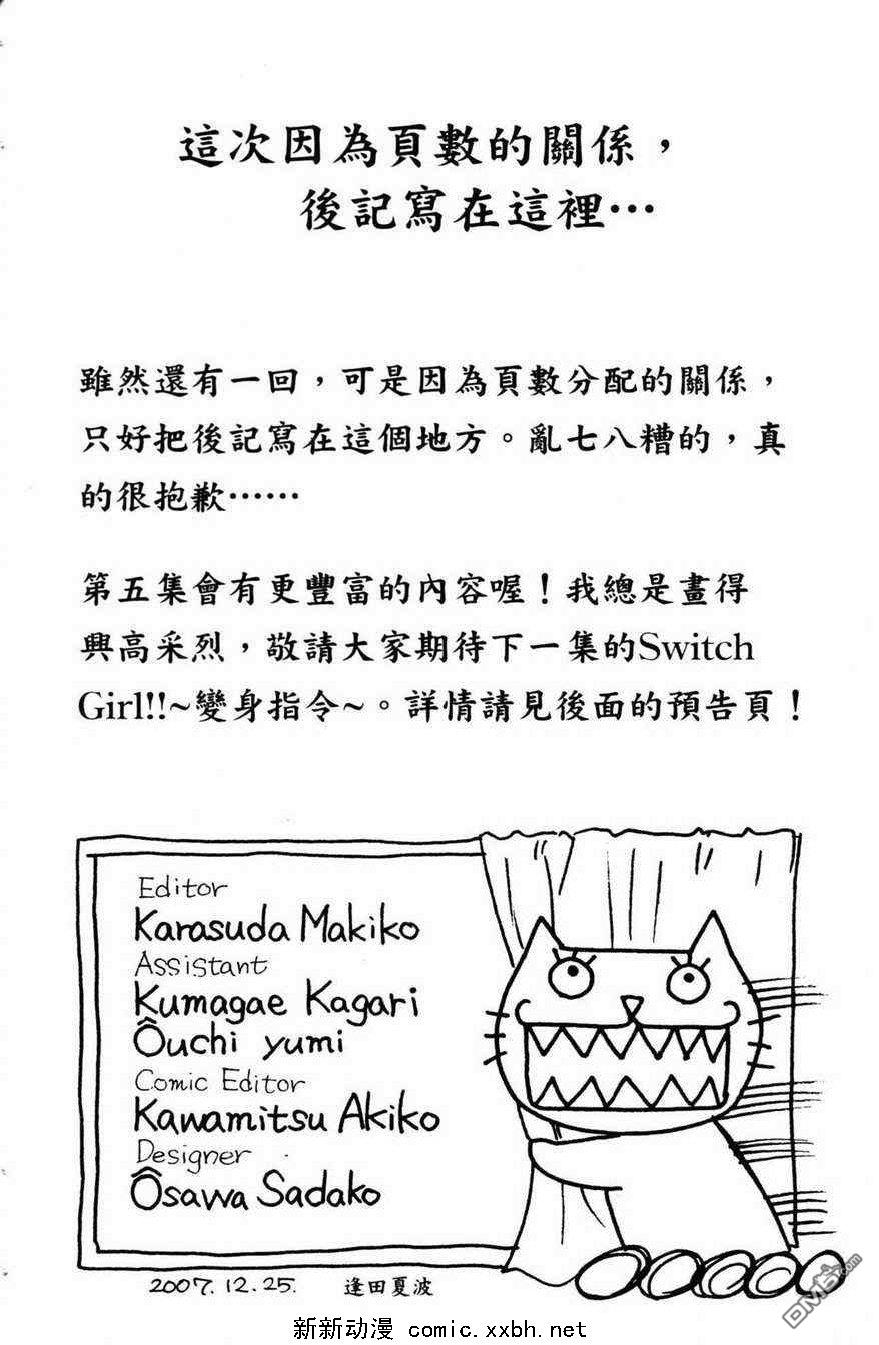 這次因為頁數的關係，
後記寫在這裡…
雖然還有一回，可是因為頁數分配的關係，
只好把後記寫在這個地方。亂七八糟的，真
的很抱歉……
第五集會有更豐富的內容喔！我總是畫得
興高采烈，敬請大家期待下一集的Switch
Girl!!~變身指令~。詳情請見後面的預告頁！
Editor
Karasuda Makiko
Assistant
Kumagae Kagari
Ôuchi yumi
Comic Editor
Kawamitsu Akiko
Designer
Ôsawa Sadako
2007.12.25. 逢田夏波
新新动漫 comic.xxbh.net
DMB.com